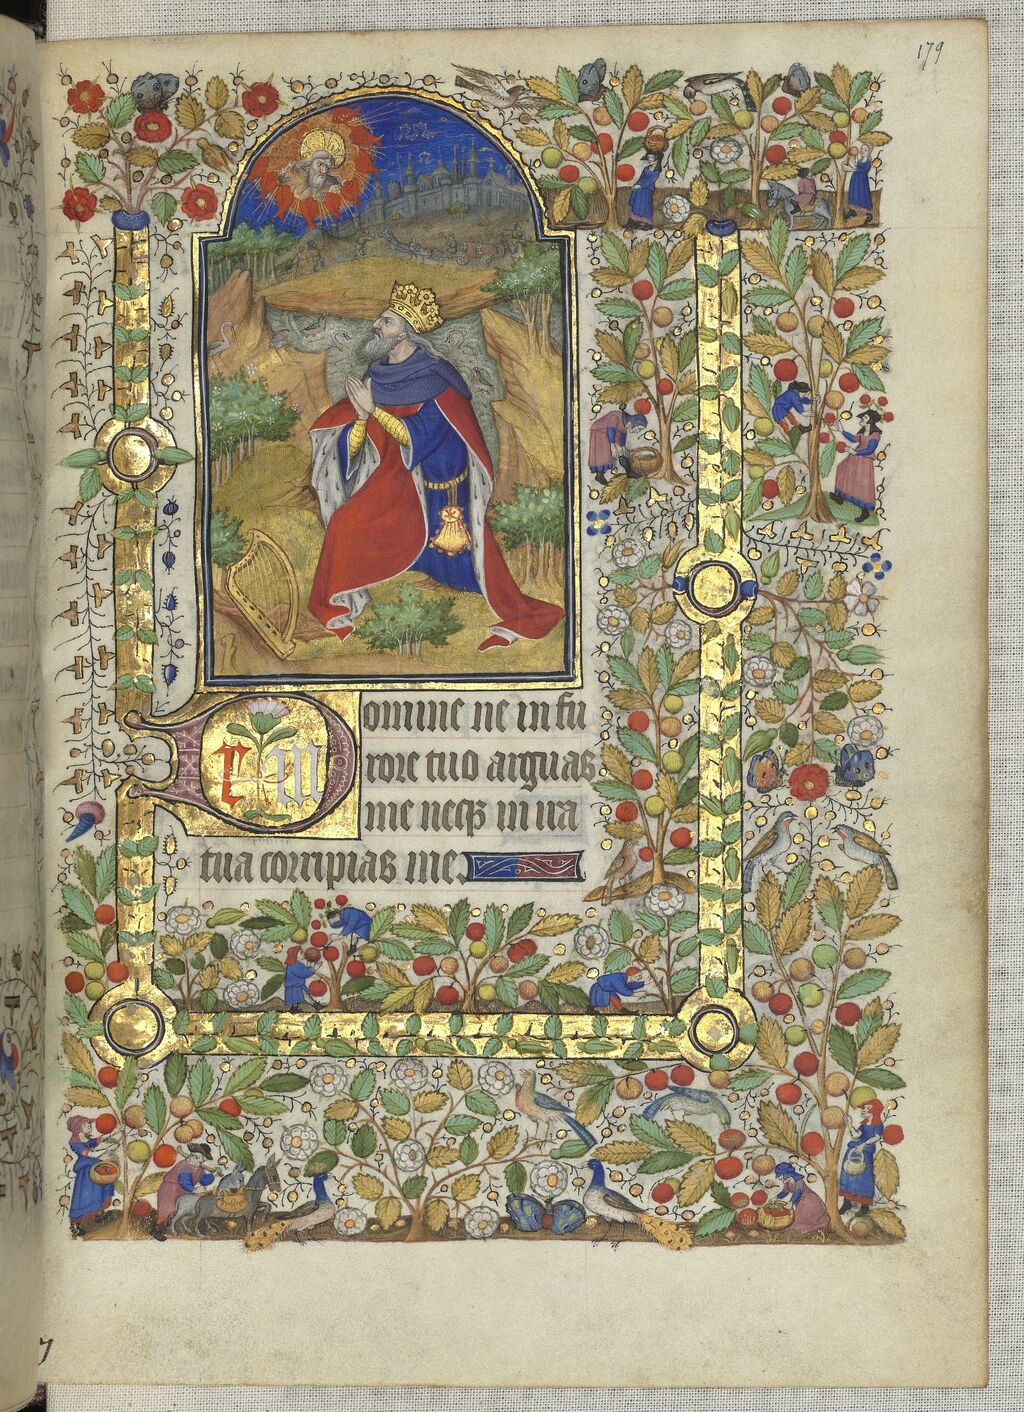 179
Domine ne in fu
rore tuo arguas
me neqꝫ in ira
tua corripias me